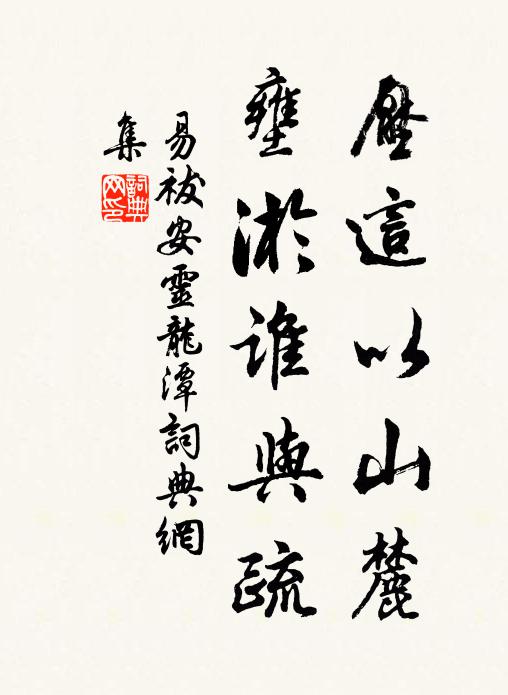 壓這以山麓
壅淤誰與疏
易袚安靈龍潭詞典網
集
詞典
网印